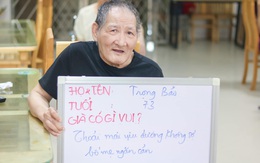 HỌ & TÊN: Trương Bẩu
TUỔI 73
GIÀ CÓ GÌ VUI?
Thoải mái yêu đương không sợ
bố mẹ ngăn cấm